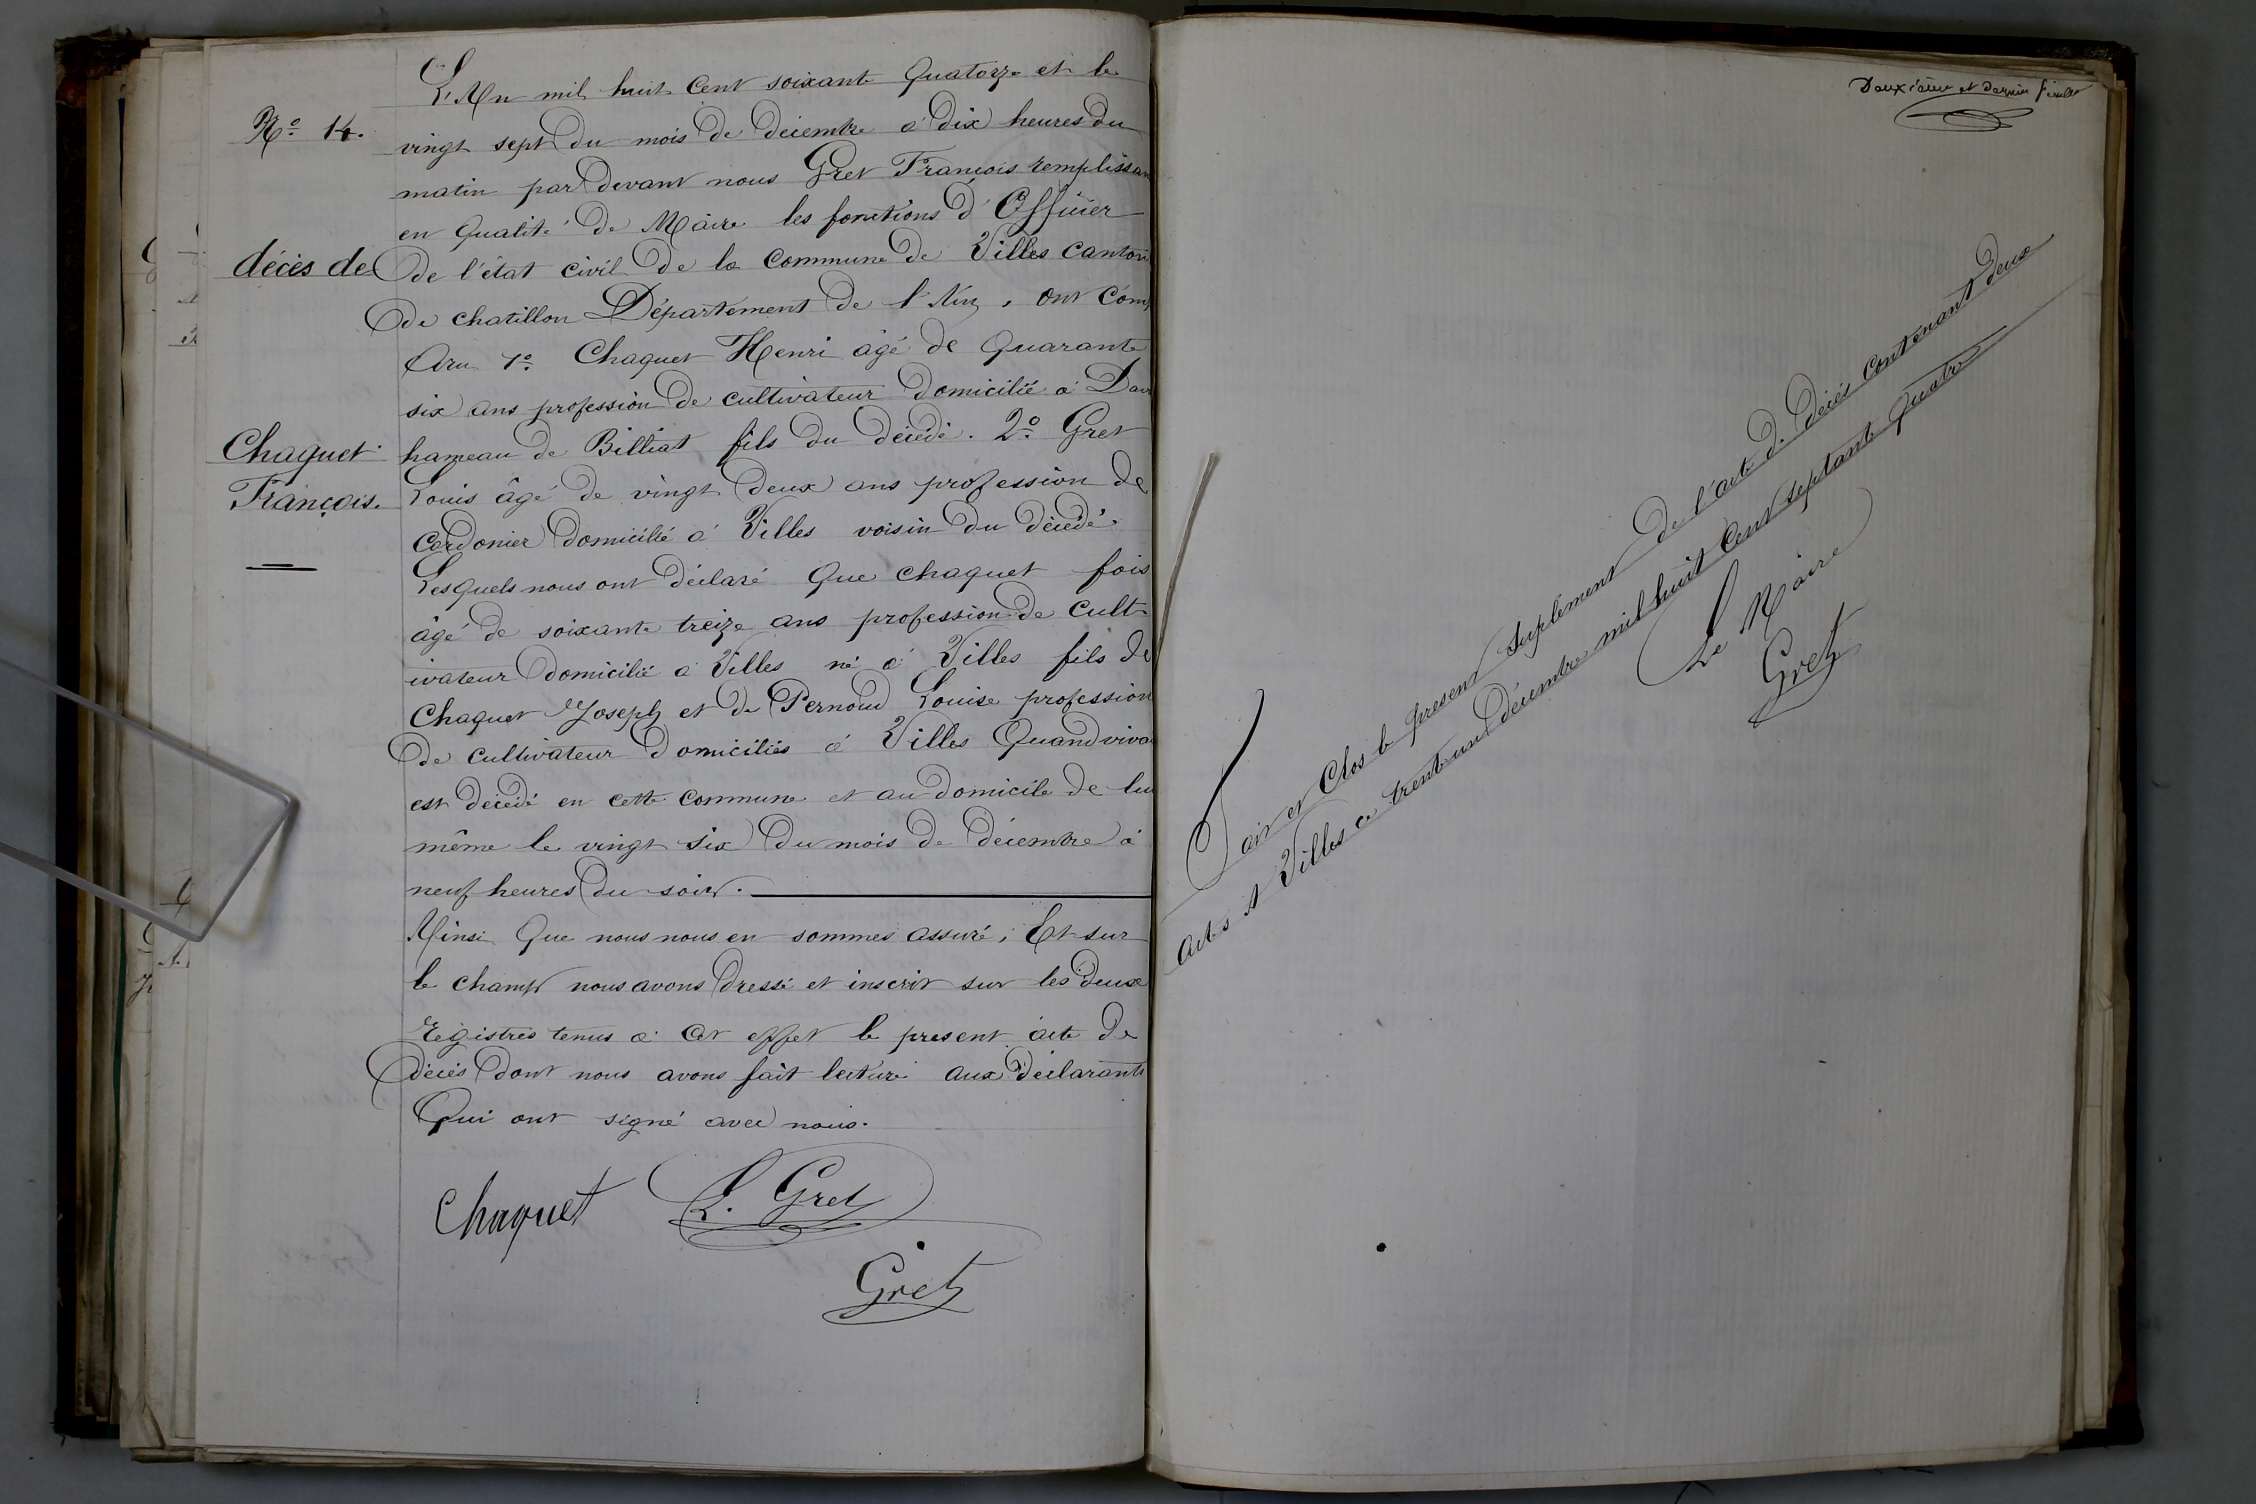 N° 14.
décès de
Chaquet
François.
L'An mil huit cent soixante Quatorze et le
vingt sept du mois de décembre à dix heures du
matin par devant nous Gret François remplissan
en Qualité de Maire les fonctions d'Officier
de l'état civil de la Commune de Villes canton
de chatillon Département de l'Ain, ont Comp
aru 1° Chaquet Henri âgé de Quarante
six ans profession de cultivateur domicilié à
hameau de Billiat fils du décédé. 2° Gret
Louis âgé de vingt deux ans profession de
Cordonier domicilié à Villes voisin du décédé
Lesquels nous ont déclaré Que chaquet fois
âgé de soixante treize ans profession de cult-
ivateur domicilié à Villes né à Villes fils de
Chaquet Joseph et de Pernoud Louise profession
de cultivateur domiciliés à Villes Quand viva
est décédé en cette commune et au domicile de lui
même le vingt six du mois de décembre à
neuf heures du soir.
Ainsi Que nous nous en sommes assuré, Et sur
le champ nous avons dressé et inscrit sur les deux
registres tenus à cet effet le present acte de
décès dont nous avons fait lecture aux déclarants
Qui ont signé avec nous.
Chaquet L. Gret
Gret
Deuxième et dernier feuille
Fait et Clos le present suplement de l'acte de décès contenant deux
actes A Villes ce trent un décembre mil huit Cent septante Quatre
Le Maire
Gret